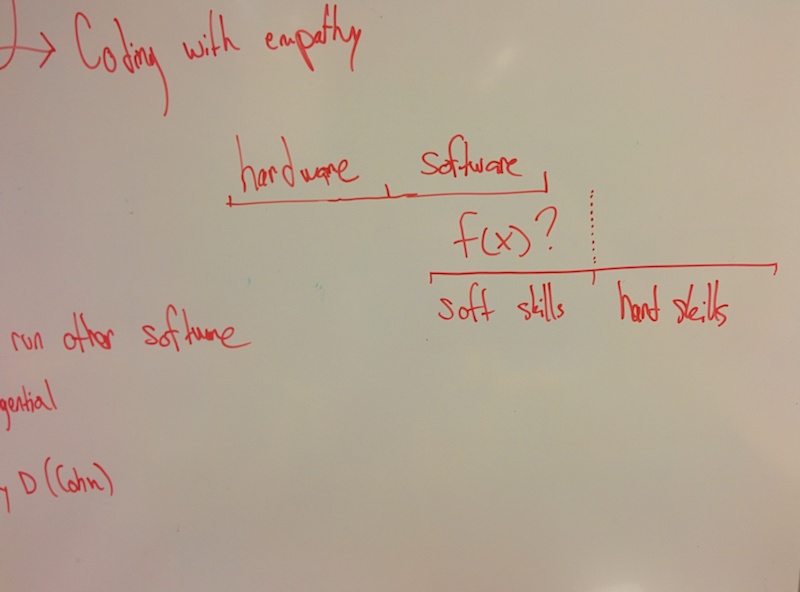 Coding with empathy
hardware software
f(x)?
soft skills hard skills
run other software
gential
y D (Cohn)